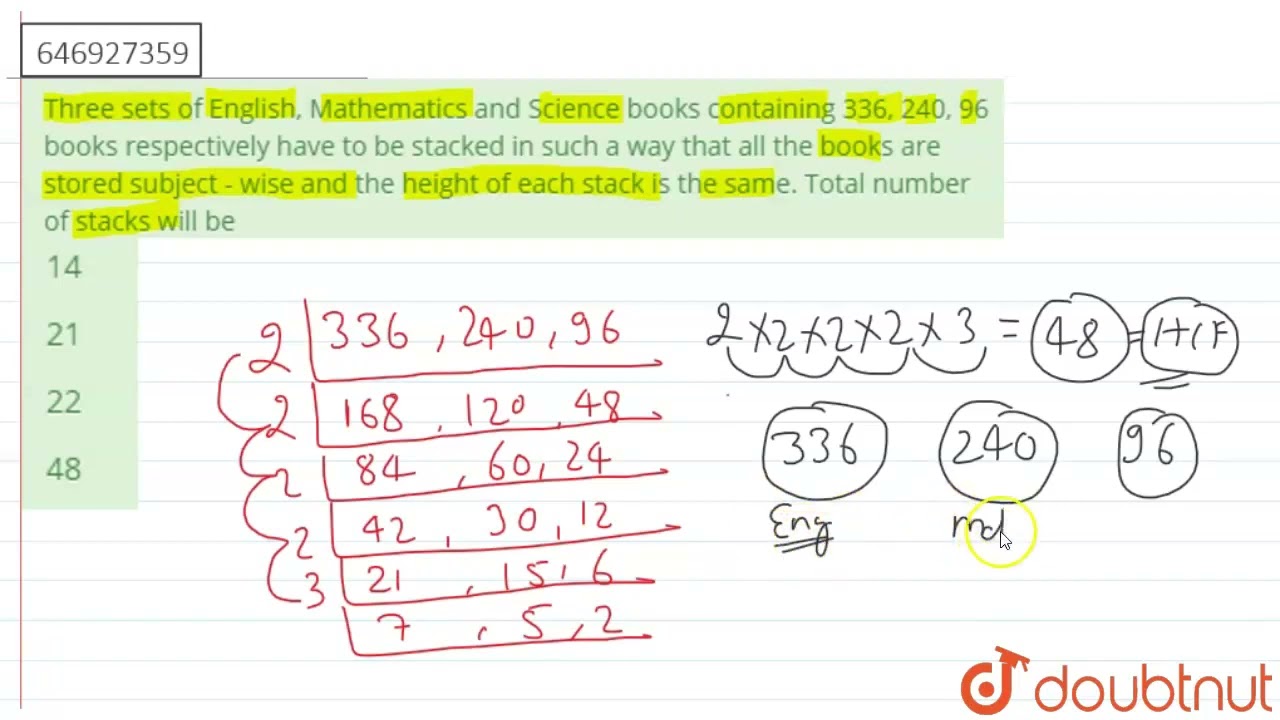 646927359
Three sets of English, Mathematics and Science books containing 336, 240, 96
books respectively have to be stacked in such a way that all the books are
stored subject - wise and the height of each stack is the same. Total number
of stacks will be
14
21
22
48
2 336, 240, 96
2 168, 120, 48
2 84, 60, 24
2 42, 30, 12
3 21, 15, 6
7, 5, 2
2 × 2 × 2 × 2 × 3 = 48 = HCF
336 240 96
Eng Ma
doubtnut